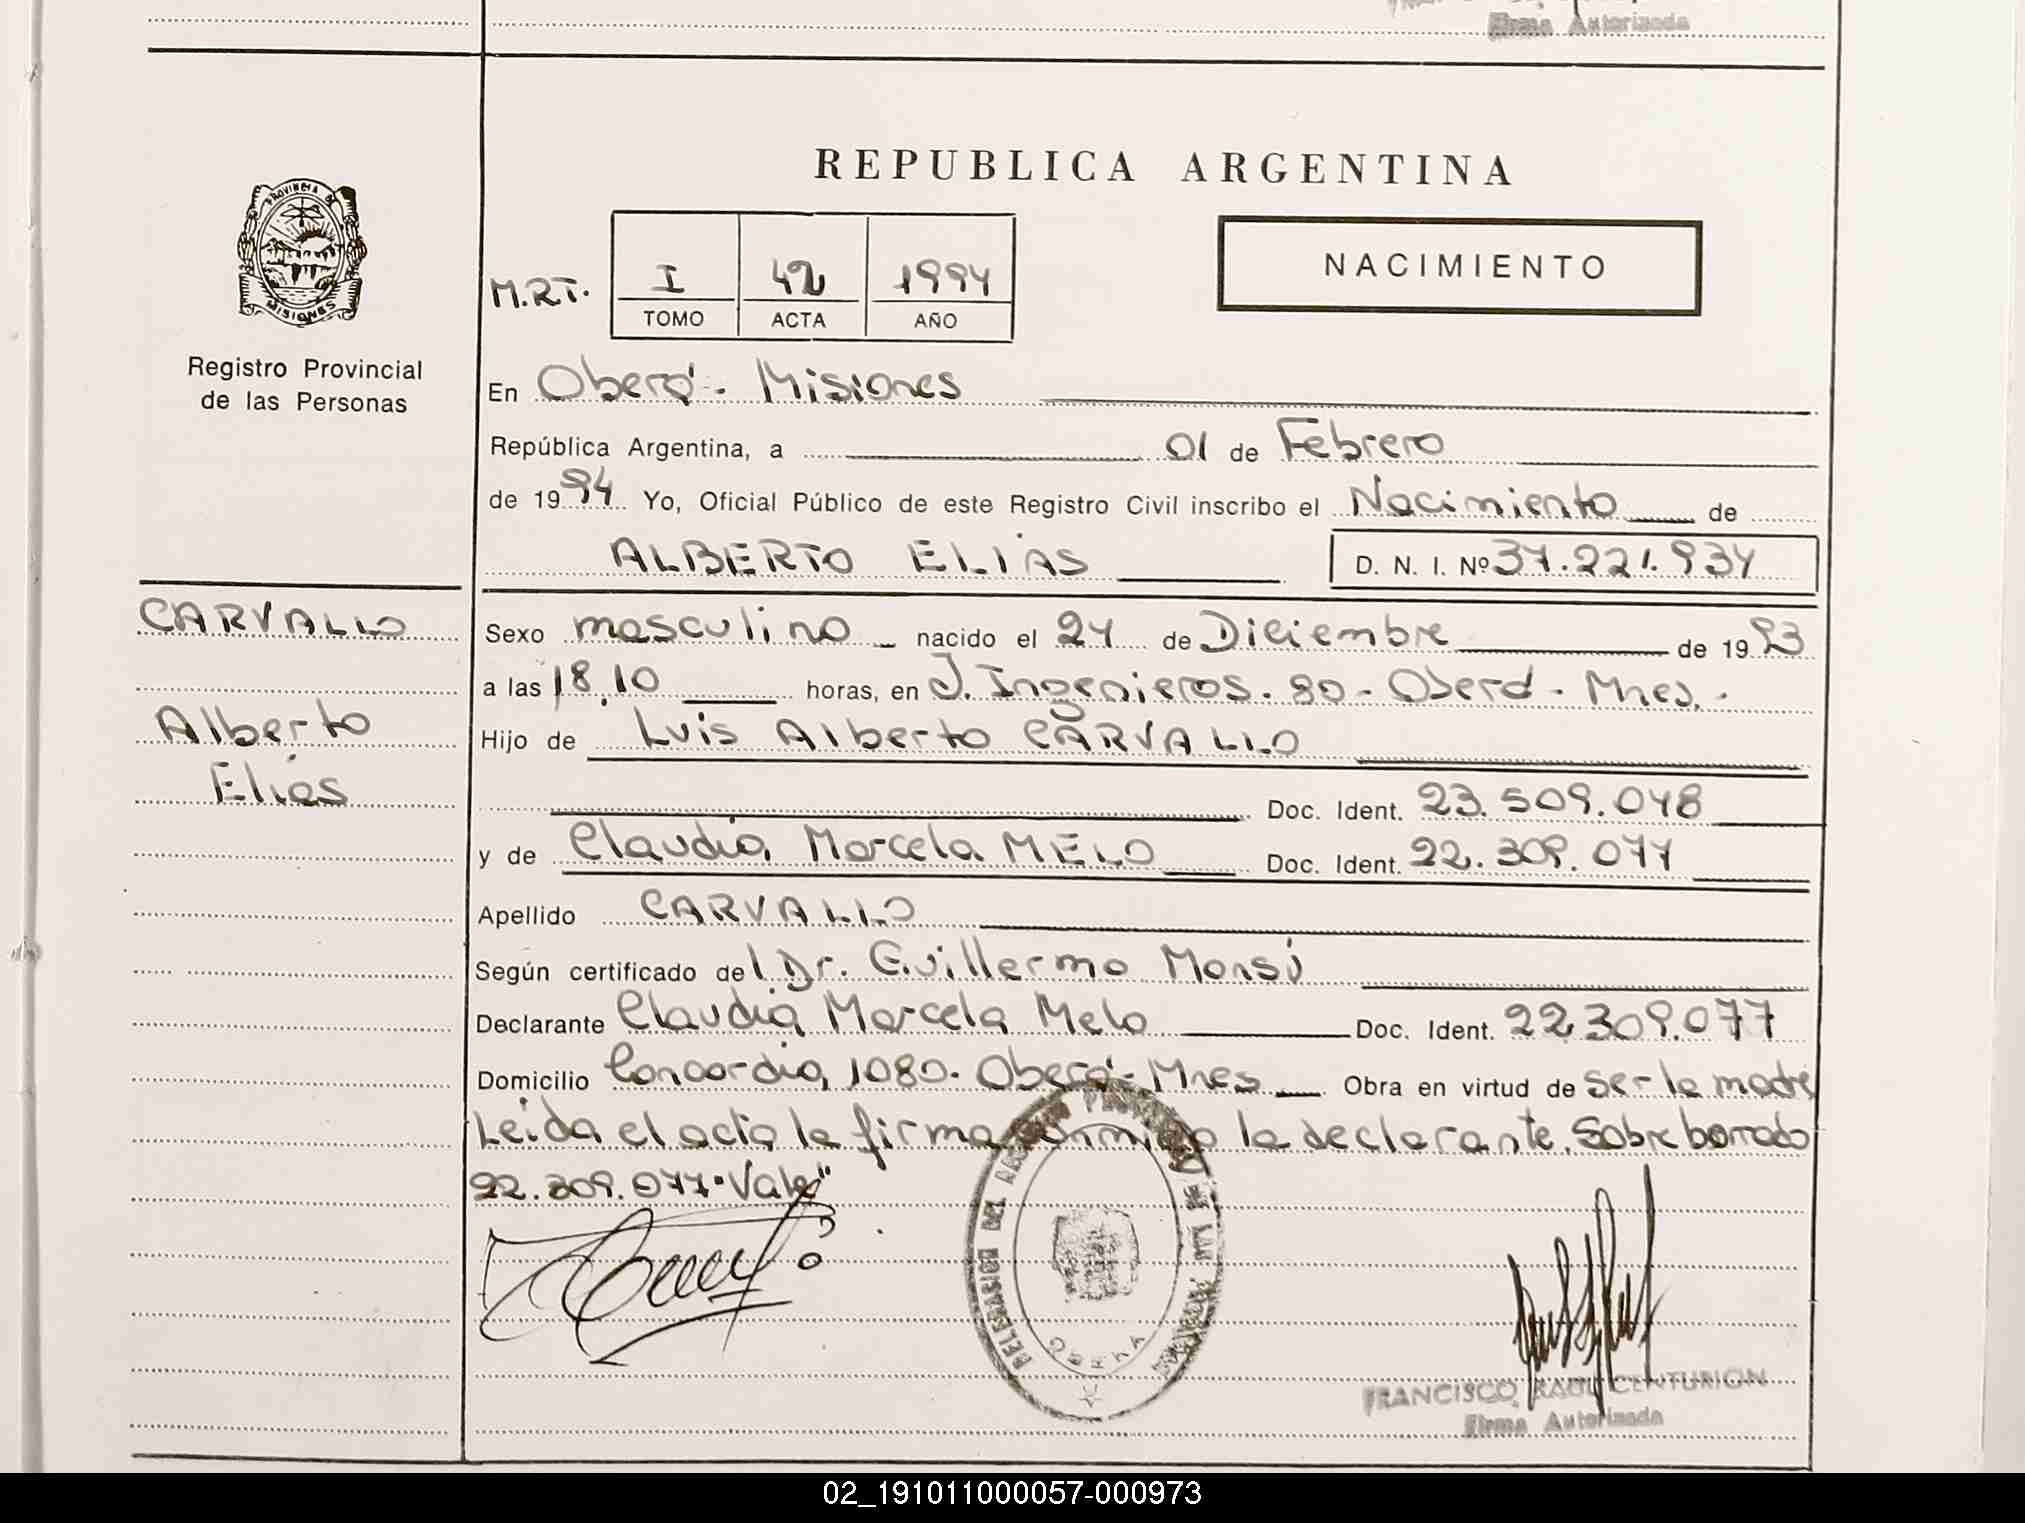 Firma Autorizada
REPUBLICA ARGENTINA
PROVINCIA DE
MISIONES
Registro Provincial
de las Personas
M.R.T.
I 42 1994
TOMO ACTA AÑO
NACIMIENTO
En Oberá - Misiones
República Argentina, a 01 de Febrero
de 1994 Yo, Oficial Público de este Registro Civil inscribo el Nacimiento de
ALBERTO ELIAS D. N. I. Nº 37.221.934
CARVALLO
Alberto
Elias
Sexo masculino nacido el 24 de Diciembre de 1993
a las 18,10 horas, en J. Ingenieros. 80 - Oberá - Mnes.
Hijo de Luis Alberto CARVALLO
Doc. Ident. 23.509.048
y de Claudia Marcela MELO Doc. Ident. 22.309.077
Apellido CARVALLO
Según certificado del Dr. Guillermo Monsú
Declarante Claudia Marcela Melo Doc. Ident. 22.309.077
Domicilio Concordia 1080. Oberá - Mnes Obra en virtud de ser la madre
Leida el acta la firma conmigo la declarante. Sobre borrado
22.309.077 "Vale"
DELEGACION DEL REGISTRO PROVINCIAL DE LAS PERSONAS
OBERA
FRANCISCO RAUL CENTURION
Firma Autorizada
02_191011000057-000973